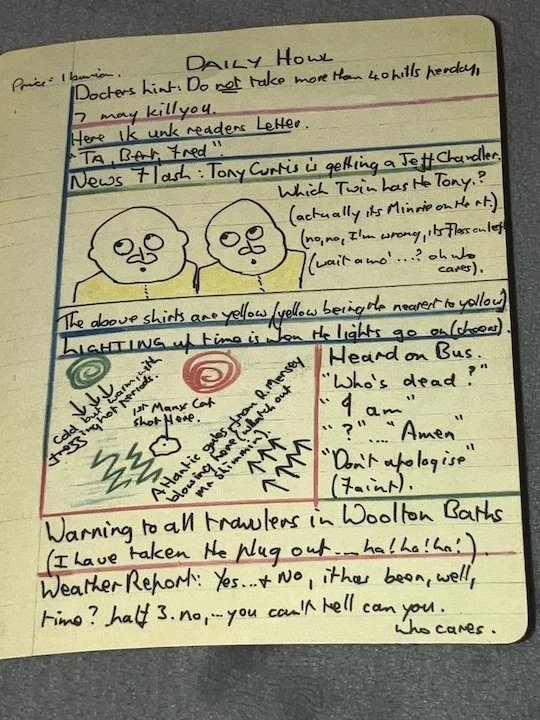 DAILY HOWL
Price: 1
Docters hint: Do not take more than 40 pills perday,
7 may kill you.
Here 1k unk readers Letter.
"TA, Bert, Fred"
News Flash: Tony Curtis is getting a Jeff Chandler.
Which Twin has the Tony.?
(actually its Minnie on the rt.)
(no,no, I'm wrong, its Floss on left
(wait a mo'....? oh who
cares).
The above shirts are yellow (yellow being the nearest to yellow)
LIGHTING up time is when the lights go on (cheers).
Cold but warm with
freezing hot periods.
1st Manx Cat
shot Here.
Atlantic gales from R.Mersey
blowing here (watch out
Mr Shimmin)
Heard on Bus.
"Who's dead ?"
"I am"
"?"...."Amen"
"Don't apologise"
(Faint).
Warning to all trawlers in Woolton Baths
(I have taken the plug out....ha! ha! ha!)
Weather Report: Yes...& No, it has been, well,
time? half 3. no,...you can't tell can you.
who cares.